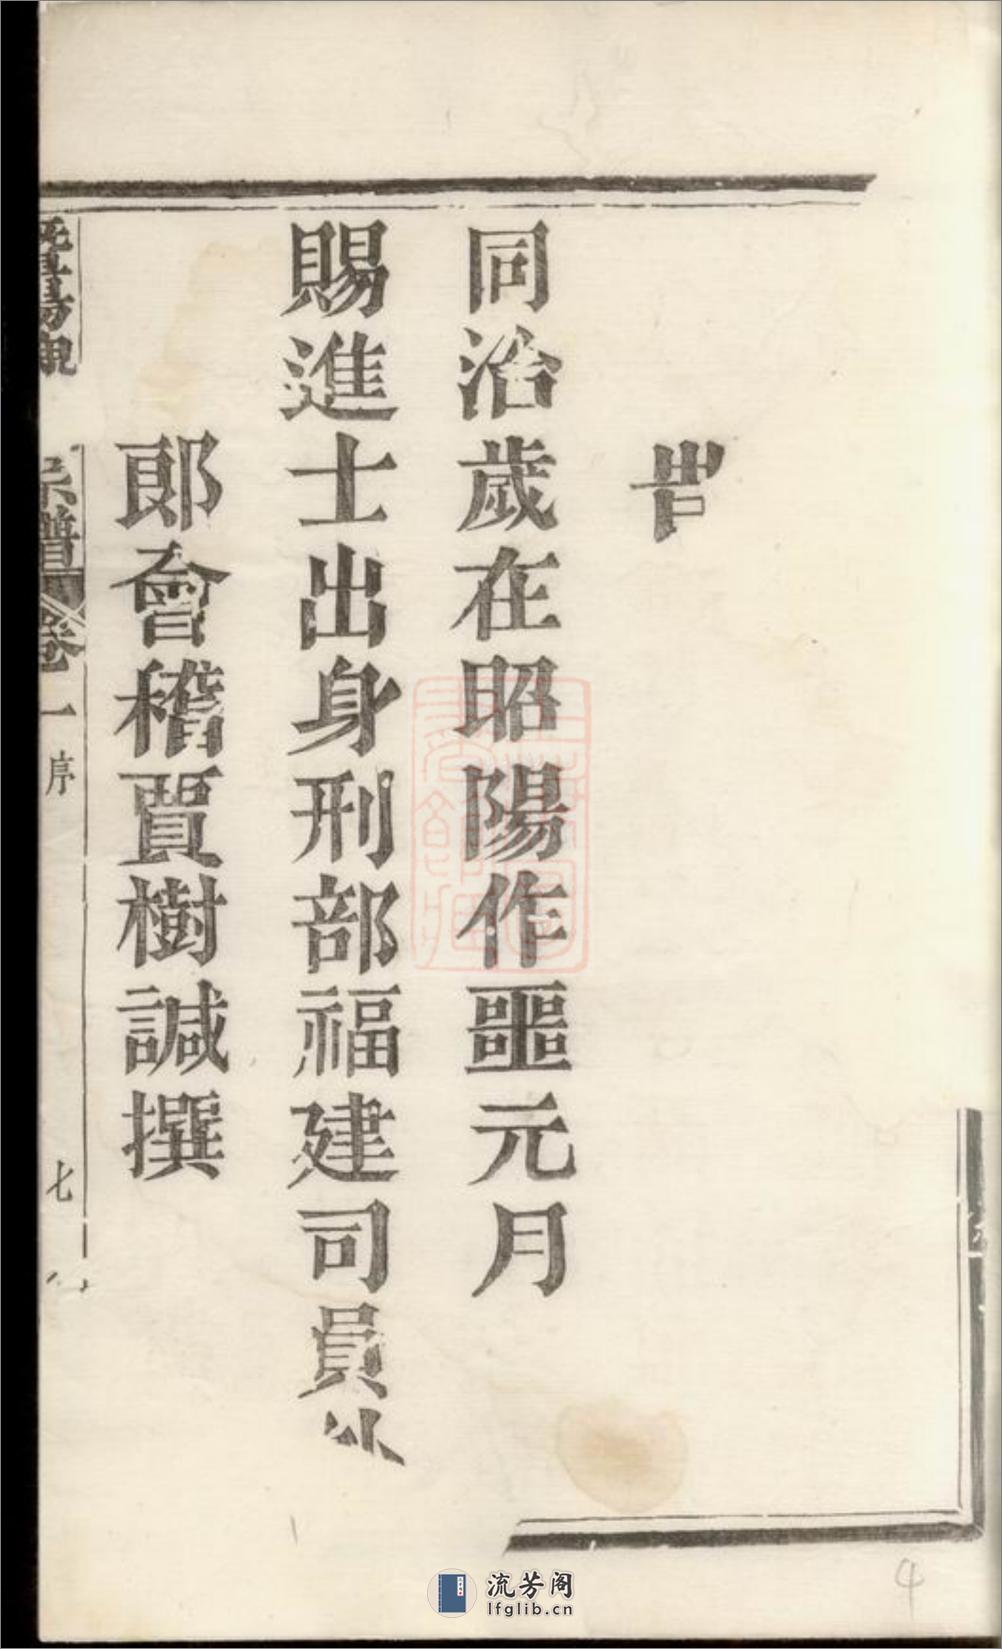 旹
同治歲在昭陽作噩元月
賜進士出身刑部福建司員外
郎會稽賈樹諴撰
宗譜 卷一 序 七
流芳阁
lfglib.cn
4